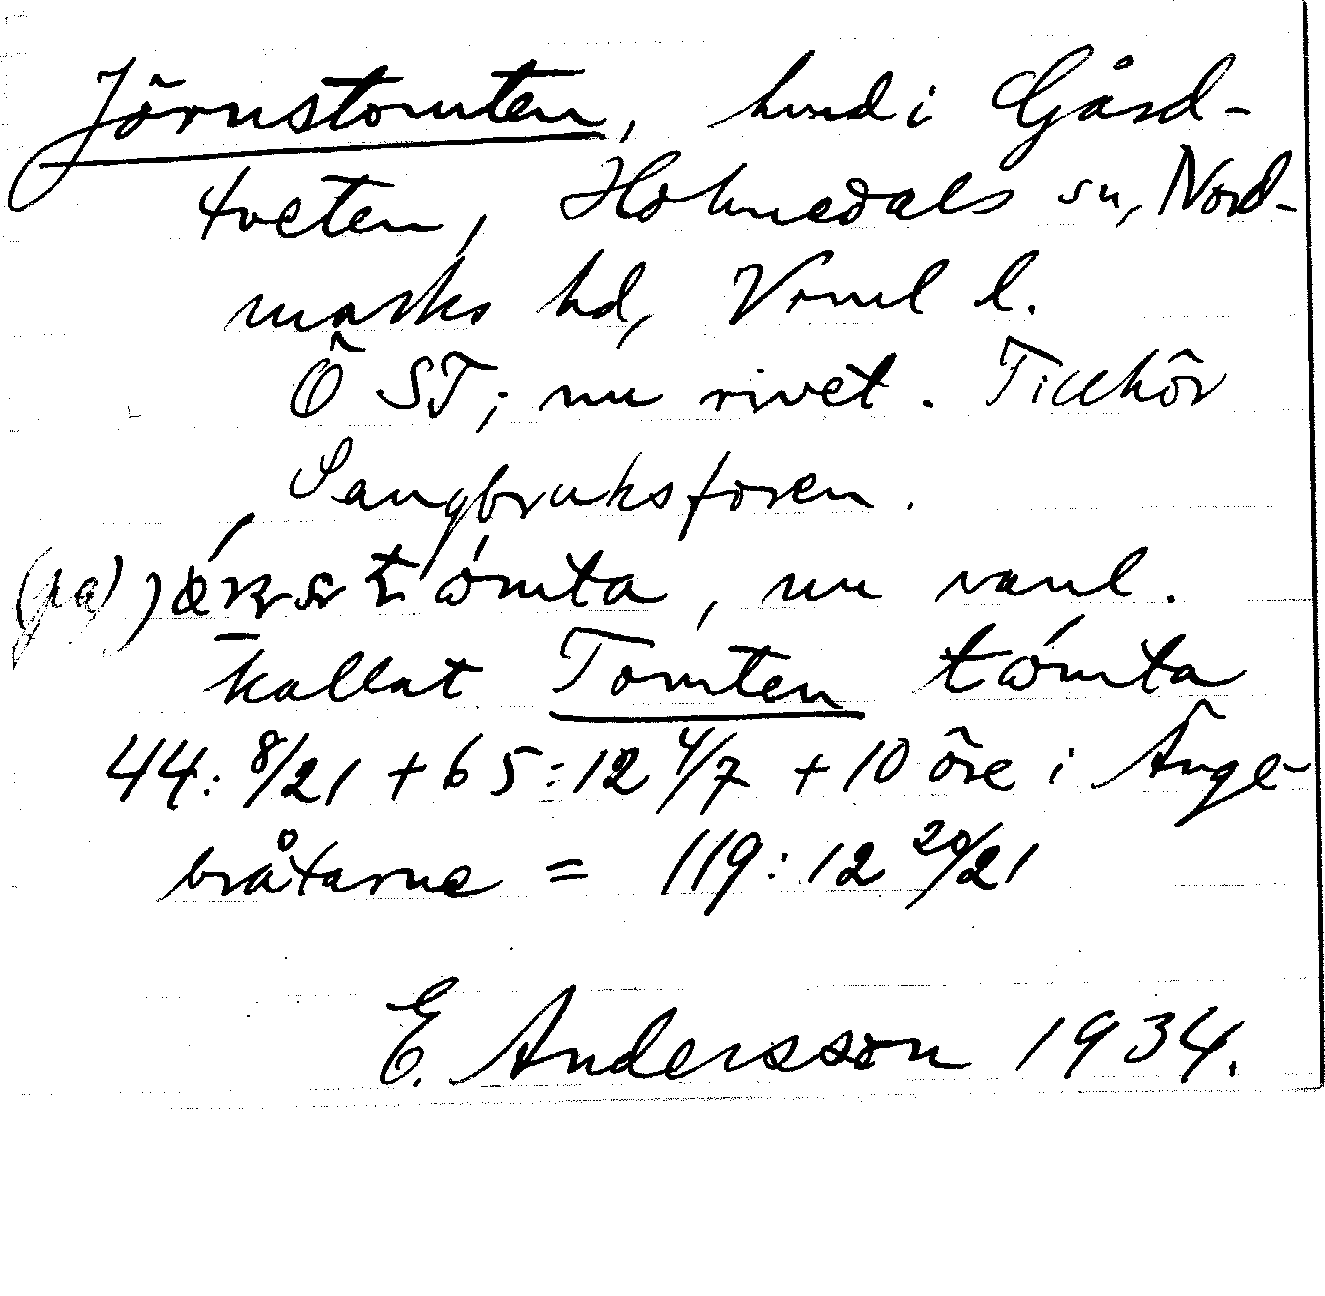 Jörnstomten, hmd i Gård-
tveten, Holmedals sn, Nord-
marks hd, Vrml l.
Ö ST; nu rivet. Tillhör
Sangbruksforen.
(på) tómta, nu vanl.
kallat Tomten tómta
44: 8/21 + 65:12 4/7 + 10 öre i Änge-
bråtarne = 119:12 20/21
E. Andersson 1934.